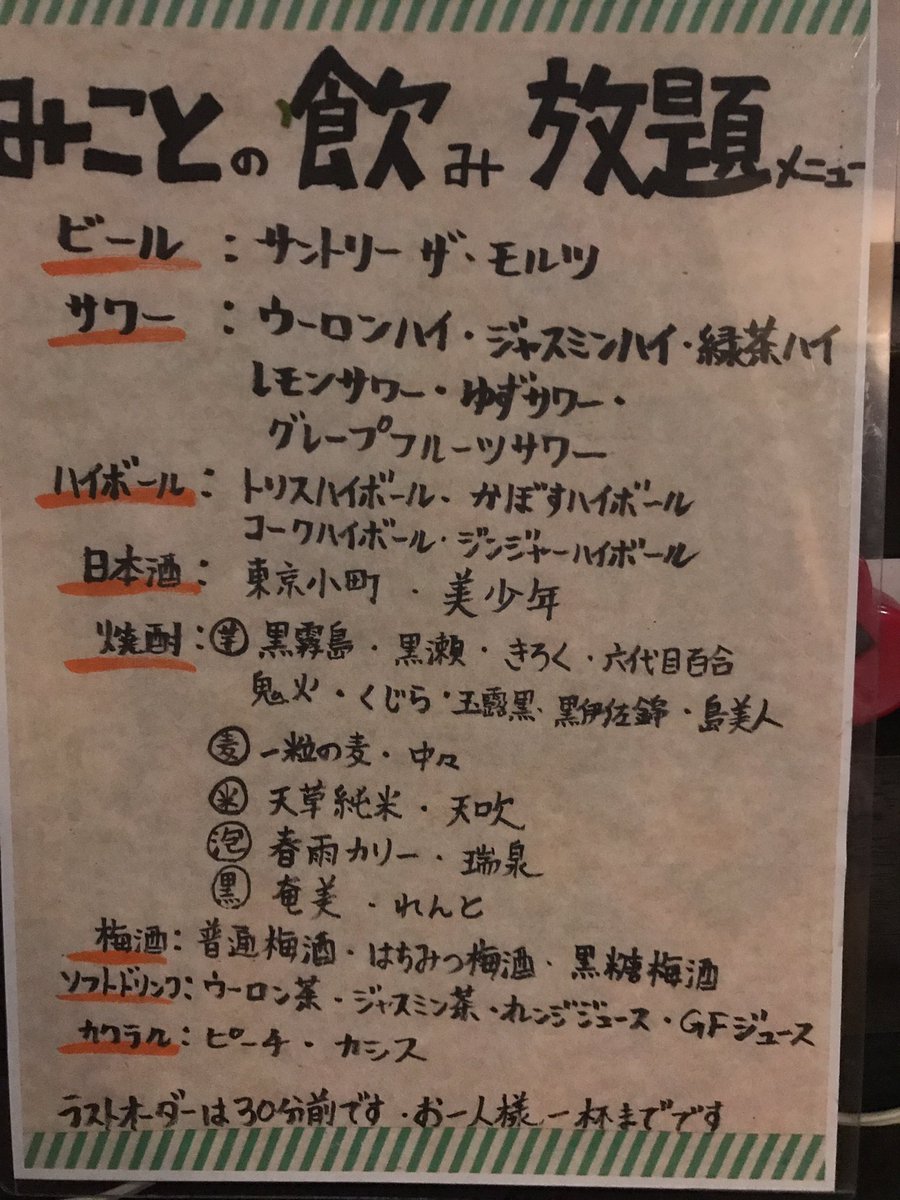 みことの飲み放題メニュー
ビール：サントリー ザ・モルツ
サワー：ウーロンハイ・ジャスミンハイ・緑茶ハイ
レモンサワー・ゆずサワー・
グレープフルーツサワー
ハイボール：トリスハイボール・かぼすハイボール
コークハイボール・ジンジャーハイボール
日本酒：東京小町・美少年
焼酎：芋 黒霧島・黒瀬・きろく・六代目百合
鬼火・くじら・玉露黒・黒伊佐錦・島美人
麦 一粒の麦・中々
米 天草純米・天吹
泡 春雨カリー・瑞泉
黒 奄美・れんと
梅酒：普通梅酒・はちみつ梅酒・黒糖梅酒
ソフトドリンク：ウーロン茶・ジャスミン茶・オレンジジュース・GFジュース
カクテル：ピーチ・カシス
ラストオーダーは30分前です・お一人様一杯までです